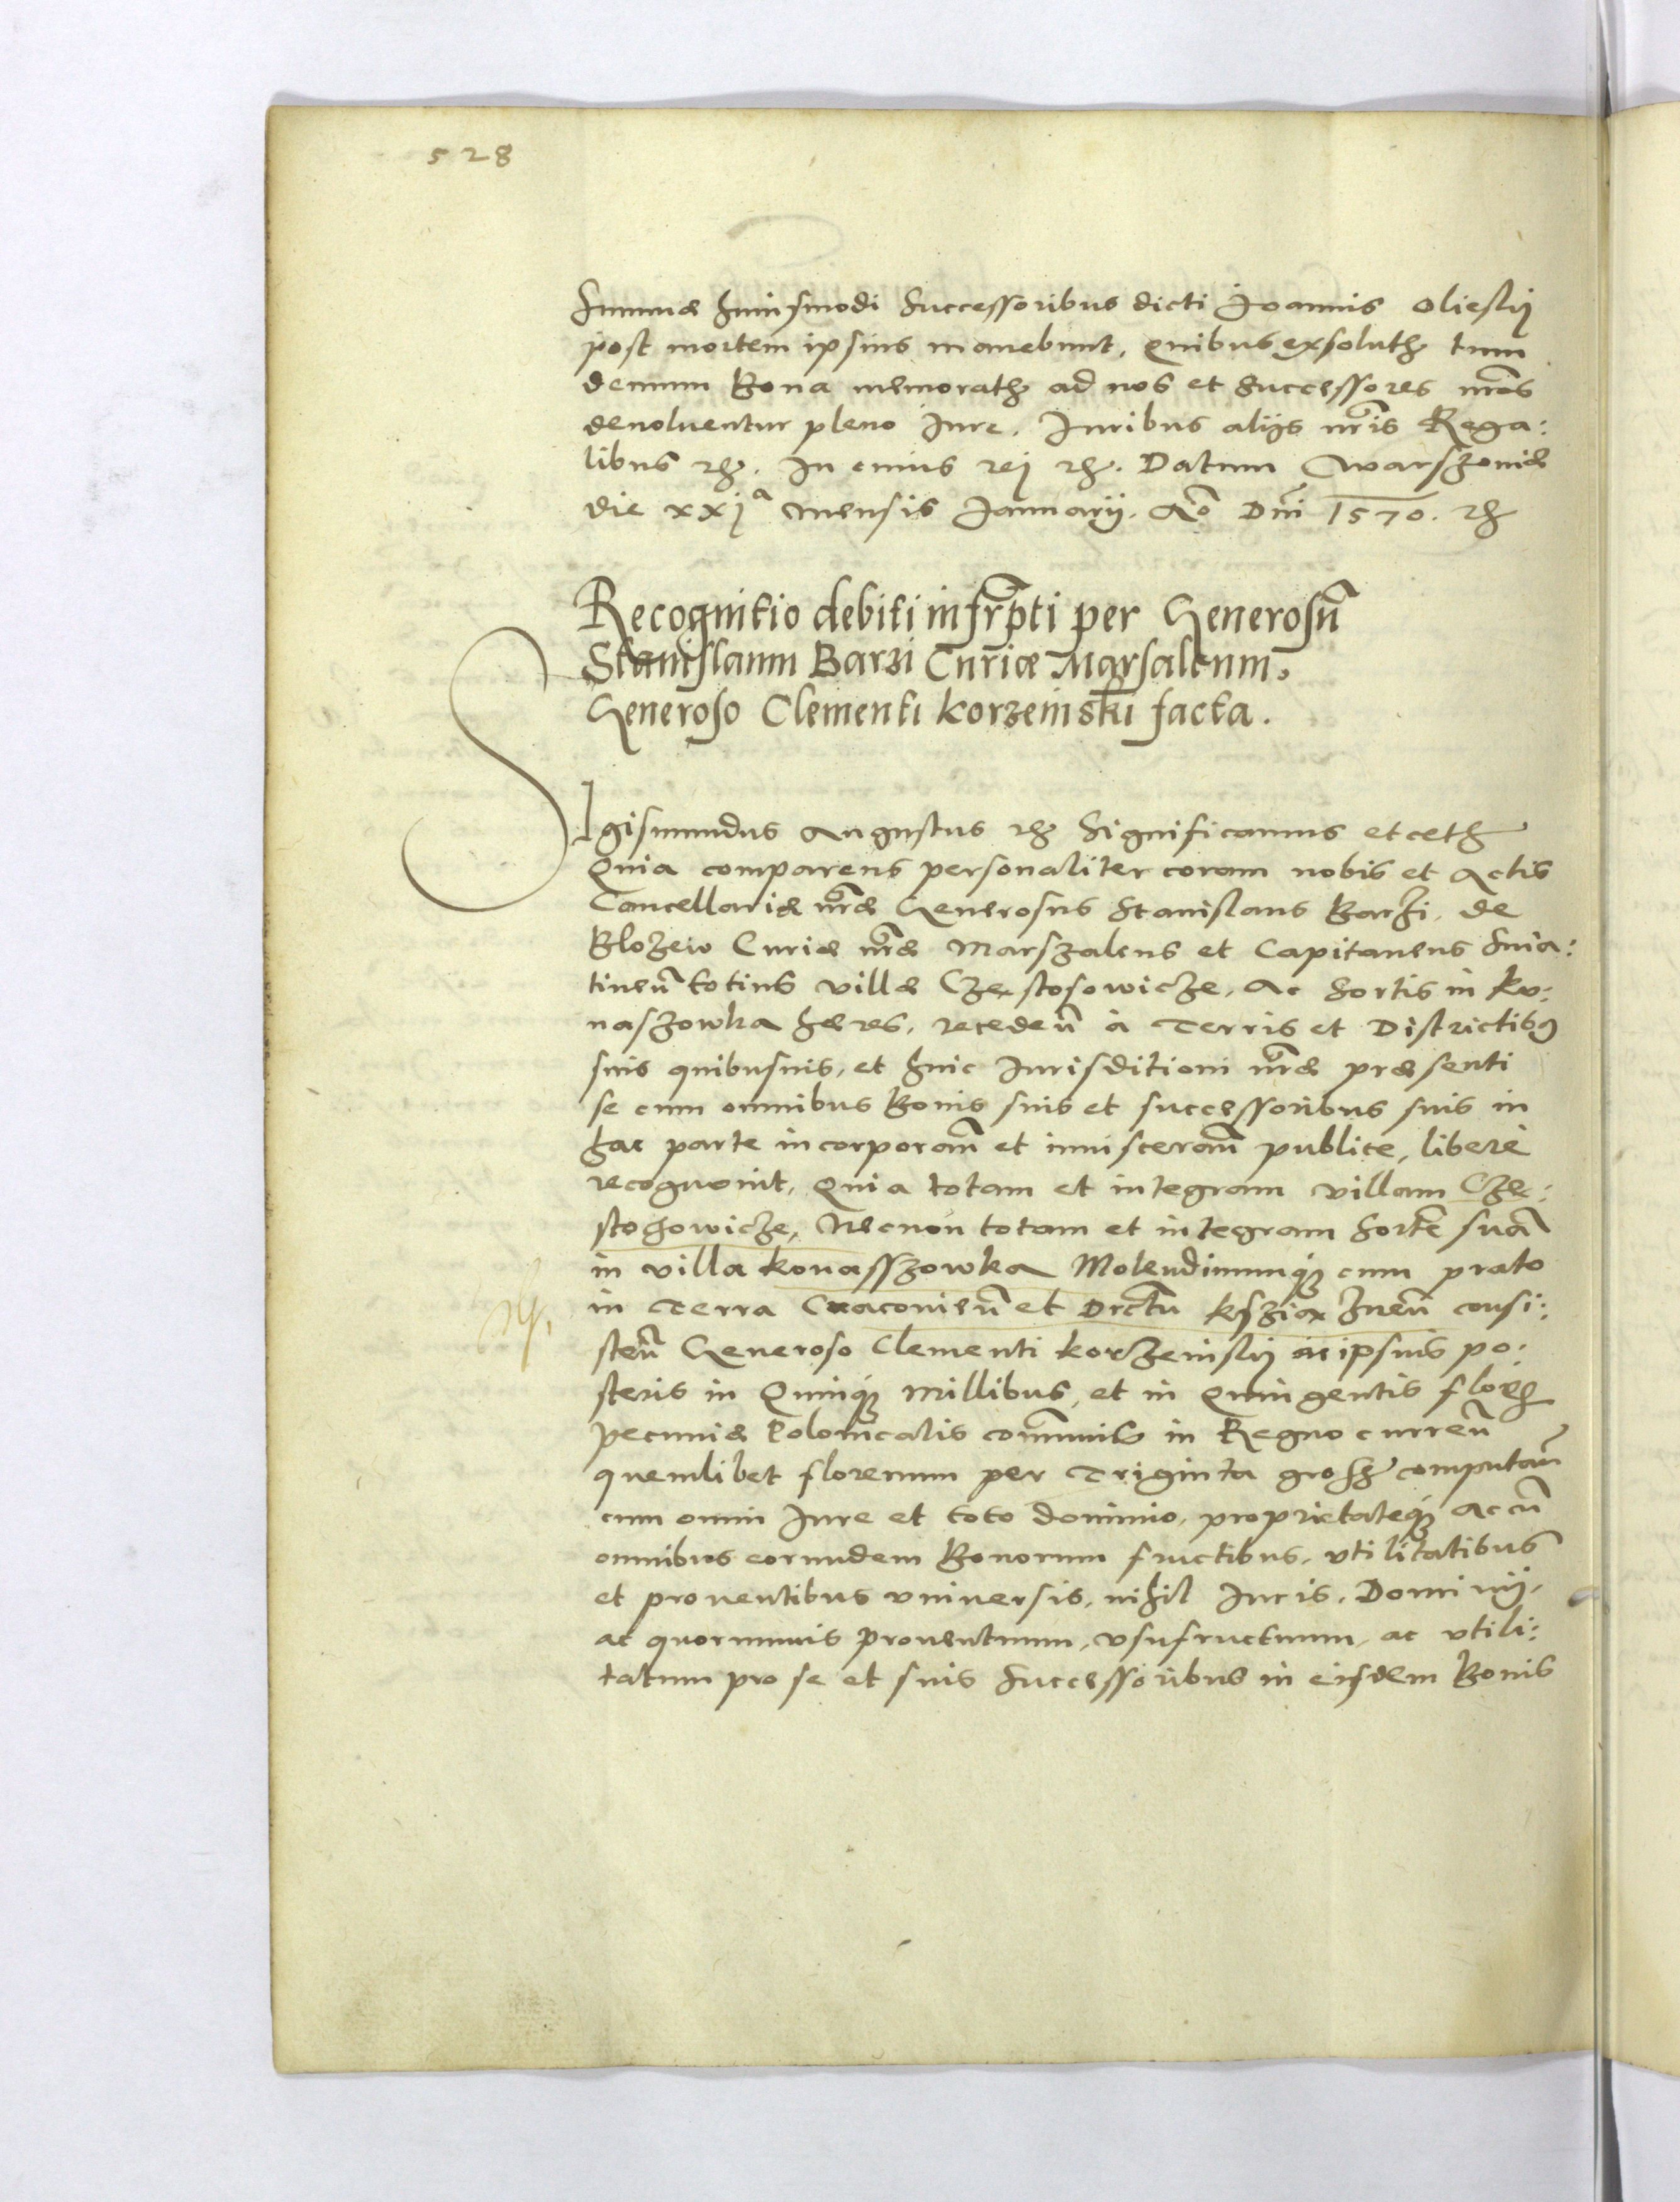 528
Summæ huiusmodi Successoribus dicti Joannis Olieskÿ
post mortem ipsius manebunt, quibus exsolutꝫ tum
demum Bona memoratꝫ ad nos et Successores nr̃os
deuoluentur pleno Jure. Juribus alijs nr̃is Rega:
libus ꝛꝫ. In cuius rej ꝛꝫ. Datum Warszouiæ
die xxjª Mensis Januarij. Aõ Dnĩ 1570. ꝛꝫ
Recognitio debiti infrp̃ti per Generosũ
Stanislaum Barzi Curiæ Marsalcum,
Generoso Clementi Korzeinski facta.
SIgismundus Augustus ꝛꝫ Significamus etcetꝫ
Quia comparens personaliter coram nobis et Actis
Cancellariæ nr̃æ Generosus Stanislaus Barzi, de
Blozew Curiæ nr̃æ Marszalcus et Capitaneus Snia:
tineñ totius villæ Czestosowicze, Ac Sortis in Ko:
naszowka hæres, recedeñ à Terris et Districtibꝰ
suis quibusuis, et huic Jurisditioni nr̃æ præsenti
se cum omnibus Bonis suis et successoribus suis in
hac parte incorporañ et inuiscerañ publicé, liberè
recognouit, Quia totam et integram villam Cze:
stochowicze, Necnon totam et integram Sortẽ suã
in villa Konasszowka Molendinumqꝫ cum prato
in Terra Cracovieñ et Drctũ Ksziąxżneñ consi:
steñ Generoso Clementi Korzeniskÿ ac ipsius po:
steris in Quinqꝫ Millibus, et in Quingentis florꝫ
pecuniæ Polonicalis com̃unis in Regno curreñ
quemlibet florenum per Triginta grosꝫ computañ
cum omni Jure et toto dominio, proprietateqꝫ Ac cũ
omnibus eorundem Bonorum fructibus, vtilitatibus
et prouentibus vniuersis, nihil Juris, Dominij,
ac quorumuis prouentuum, vsufructuum, ac vtili:
tatum pro se et suis Successoribus in eisdem Bonis